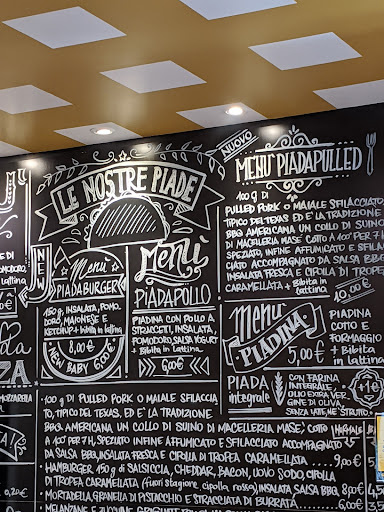 LE NOSTRE PIADE
NEW
Menù
PIADABURGER
150 g, INSALATA, POMO_
DORO, MAIONESE E
KETCHUP + bibita in lattina
8,00€
NEW BABY 6,00€
Menù
PIADAPOLLO
PIADINA CON POLLO A
STRACCETTI, INSALATA,
POMODORO, SALSA YOGURT
+ Bibita in Lattina
6,00€
NUOVO
MENÙ PIADAPULLED
100 g DI
PULLED PORK O MAIALE SFILACCIATO,
TIPICO DEL TEXAS, ED E' LA TRADIZIONE
BBQ AMERICANA UN COLLO DI SUINO
DI MACELLERIA MASE' COTTO A 100° PER 7 H
SPEZIATO INFINE AFFUMICATO E SFILAC_
CIATO ACCOMPAGNATO DA SALSA BBQ
INSALATA FRESCA E CIPOLLA DI TROPEA
CARAMELLATA + Bibita in Lattina
10,00€
Menù
PIADINA
PIADINA
COTTO E
FORMAGGIO
+ Bibita
in Lattina
5,00€
PIADA
integrale
CON FARINA
INTEGRALE,
OLIO EXTRA VER_
GINE DI OLIVA,
SENZA LATTE, NE' STRUTTO.
+1€
• 100 g DI PULLED PORK O MAIALE SFILACCIA_
TO, TIPICO DEL TEXAS, ED E' LA TRADIZIONE
BBQ AMERICANA UN COLLO DI SUINO DI MACELLERIA MASE', COTTO
A 100° PER 7 H, SPEZIATO INFINE AFFUMICATO E SFILACCIATO ACCOMPAGNATO
DA SALSA BBQ, INSALATA FRESCA E CIPOLLA DI TROPEA CARAMELLATA 9,00€
• HAMBURGER 150 g DI SALSICCIA, CHEDDAR, BACON, UOVO SODO, CIPOLLA
DI TROPEA CARAMELLATA (fuori stagione, cipolla rossa), INSALATA, SALSA BBQ 8,00€
• MORTADELLA, GRANELLA DI PISTACCHIO E STRACCIATA DI BURRATA 6,00€
0,20€